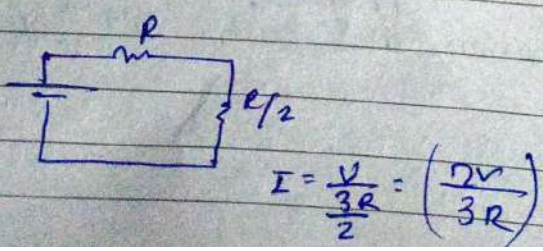 R
R/2
I = V / (3R/2) = (2V / 3R)